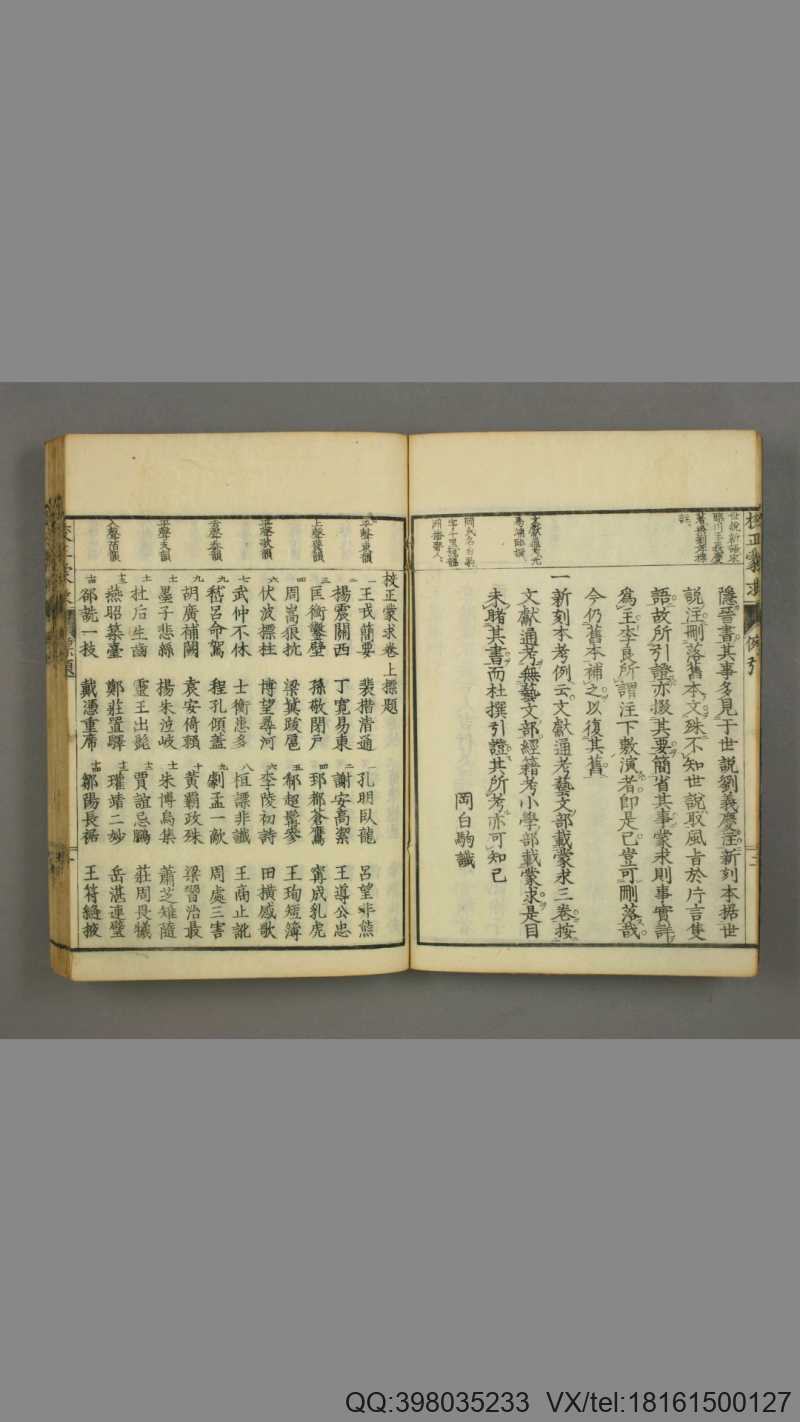 隱晉書其事多見于世說劉義慶注新刻本據世
說注刪落舊本文殊不知世說取風旨於片言隻
語故所引證亦掇其要簡省其事蒙求則事實詳
爲主李良所謂注下敷演者卽是已豈可刪落哉
今仍舊本補之以復其舊
一新刻本考例云文獻通考藝文部載蒙求三卷按
文獻通考無藝文部經籍考小學部載蒙求是目
未睹其書而杜撰引證其所考亦可知已
岡白駒識
校正蒙求卷上標題
平聲東韻
一王戎簡要 裴楷清通 一孔明臥龍 呂望非熊
二楊震關西 丁寬易東 二謝安高絜 王導公忠
上聲麌韻
三匡衡鑿壁 孫敬閉戶 三郅都蒼鷹 甯成乳虎
四周嵩狼抗 梁冀跋扈 四郗超髯參 王珣短簿
平聲歌韻
六伏波標柱 博望尋河 六李陵初詩 田橫感歌
七武仲不休 士衡患多 八桓譚非讖 王商止訛
去聲泰韻
九嵇呂命駕 程孔傾蓋 九劇孟一敵 周處三害
九胡廣補闕 袁安倚賴 十黃霸政殊 梁習治最
平聲支韻
土墨子悲絲 楊朱泣岐 土朱博烏集 蕭芝雉隨
土杜后生齒 靈王出髭 賈誼忌鵩 莊周畏犧
燕昭築臺 鄭莊置驛 瓘靖二妙 岳湛連璧
郤詵一枝 戴憑重席 鄒陽長裾 王符縫掖
QQ:398035233 VX/tel:18161500127